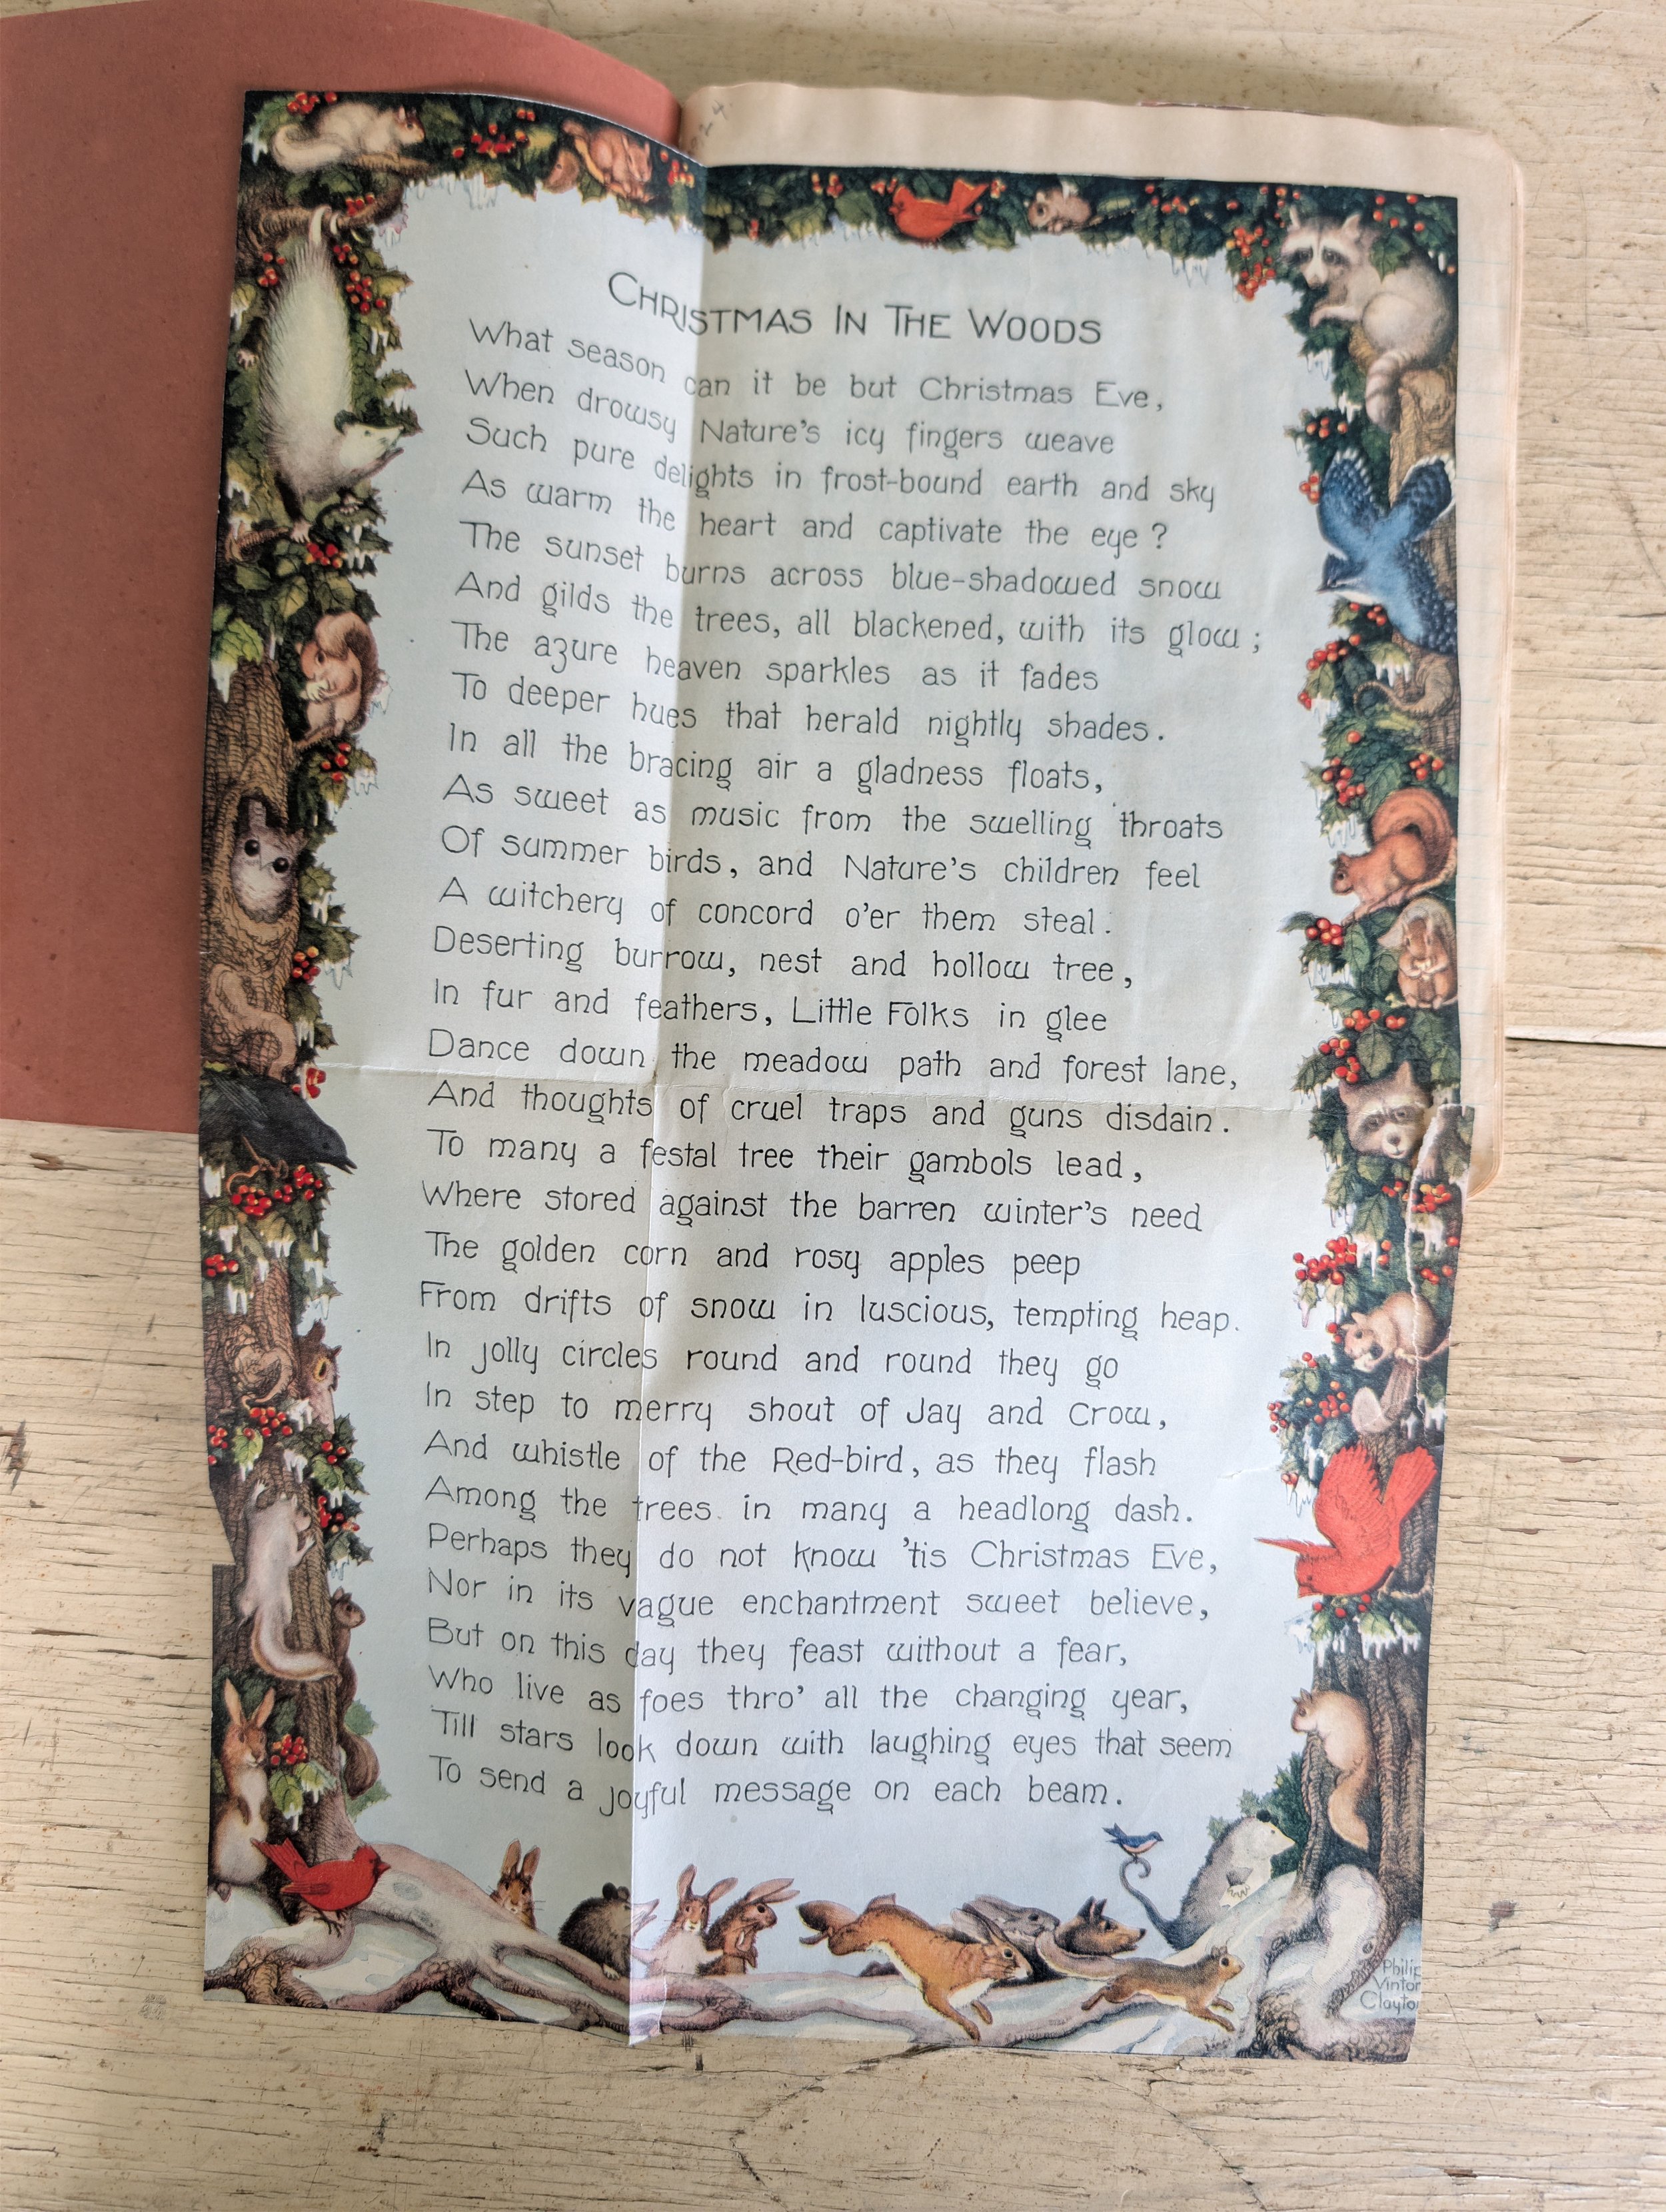 CHRISTMAS IN THE WOODS
What season can it be but Christmas Eve,
When drowsy Nature's icy fingers weave
Such pure delights in frost-bound earth and sky
As warm the heart and captivate the eye?
The sunset burns across blue-shadowed snow
And gilds the trees, all blackened, with its glow;
The azure heaven sparkles as it fades
To deeper hues that herald nightly shades.
In all the bracing air a gladness floats,
As sweet as music from the swelling throats
Of summer birds, and Nature's children feel
A witchery of concord o'er them steal.
Deserting burrow, nest and hollow tree,
In fur and feathers, Little Folks in glee
Dance down the meadow path and forest lane,
And thoughts of cruel traps and guns disdain.
To many a festal tree their gambols lead,
Where stored against the barren winter's need
The golden corn and rosy apples peep
From drifts of snow in luscious, tempting heap.
In jolly circles round and round they go
In step to merry shout of Jay and Crow,
And whistle of the Red-bird, as they flash
Among the trees in many a headlong dash.
Perhaps they do not know 'tis Christmas Eve,
Nor in its vague enchantment sweet believe,
But on this day they feast without a fear,
Who live as foes thro' all the changing year,
Till stars look down with laughing eyes that seem
To send a joyful message on each beam.
Philip
Vinton
Clayto